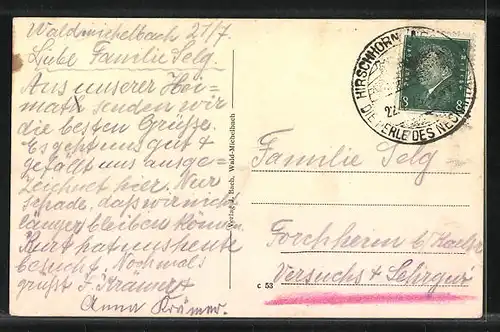 Waldmichelbach 21/7.
Liebe Familie Selg.
Aus unserer Hei-
mat senden wir
die besten Grüße.
Es geht uns gut &
gefällt uns ausge-
zeichnet hier. Nur
schade, daß wir nicht
länger bleiben können.
Kurt hat uns heute
besucht. Nochmals
grüßt F. Krämer &
Anna Krämer.
Verlag J. Bach, Wald-Michelbach
c 53
HIRSCHHORN
DIE PERLE DES NECKARTALS
22.
8 8
Familie Selg
Forchheim b/
Versuchs & Lehrgut